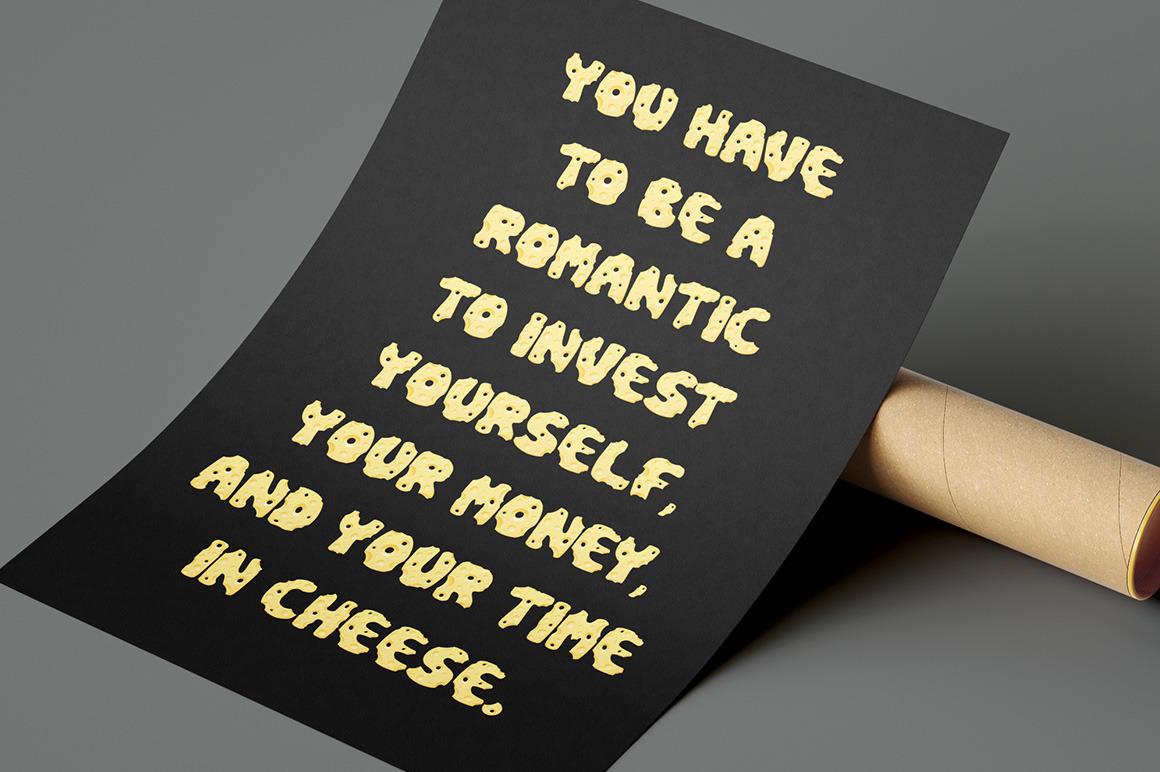 YOU HAVE
TO BE A
ROMANTIC
TO INVEST
YOURSELF,
YOUR MONEY,
AND YOUR TIME
IN CHEESE.